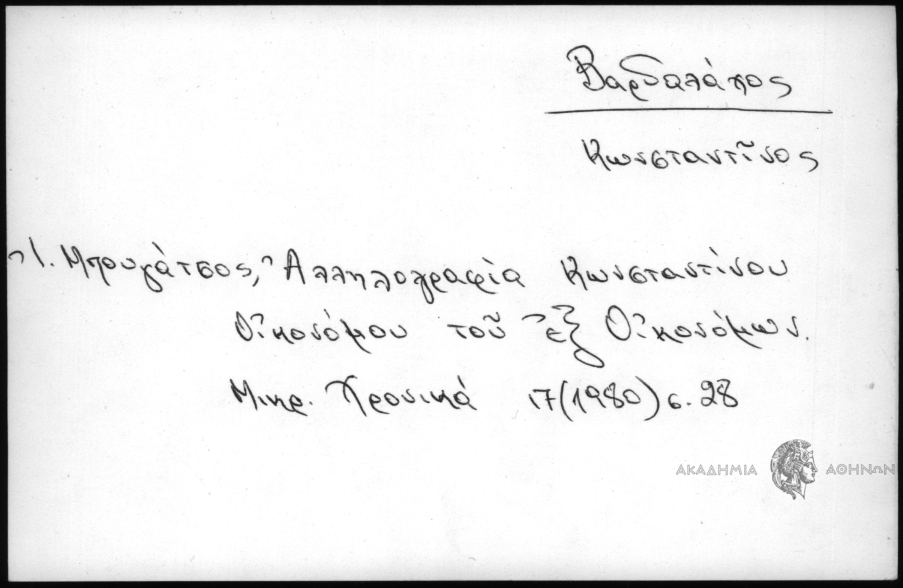 Βαρδαλάχος
Κωνσταντῖνος
Ἰ. Μπουγάτσος, Ἀλληλογραφία Κωνσταντίνου
Οἰκονόμου τοῦ ἐξ Οἰκονόμων.
Μικρ. Χρονικά 17(1980) σ. 28
ΑΚΑΔΗΜΙΑ ΑΘΗΝΩΝ